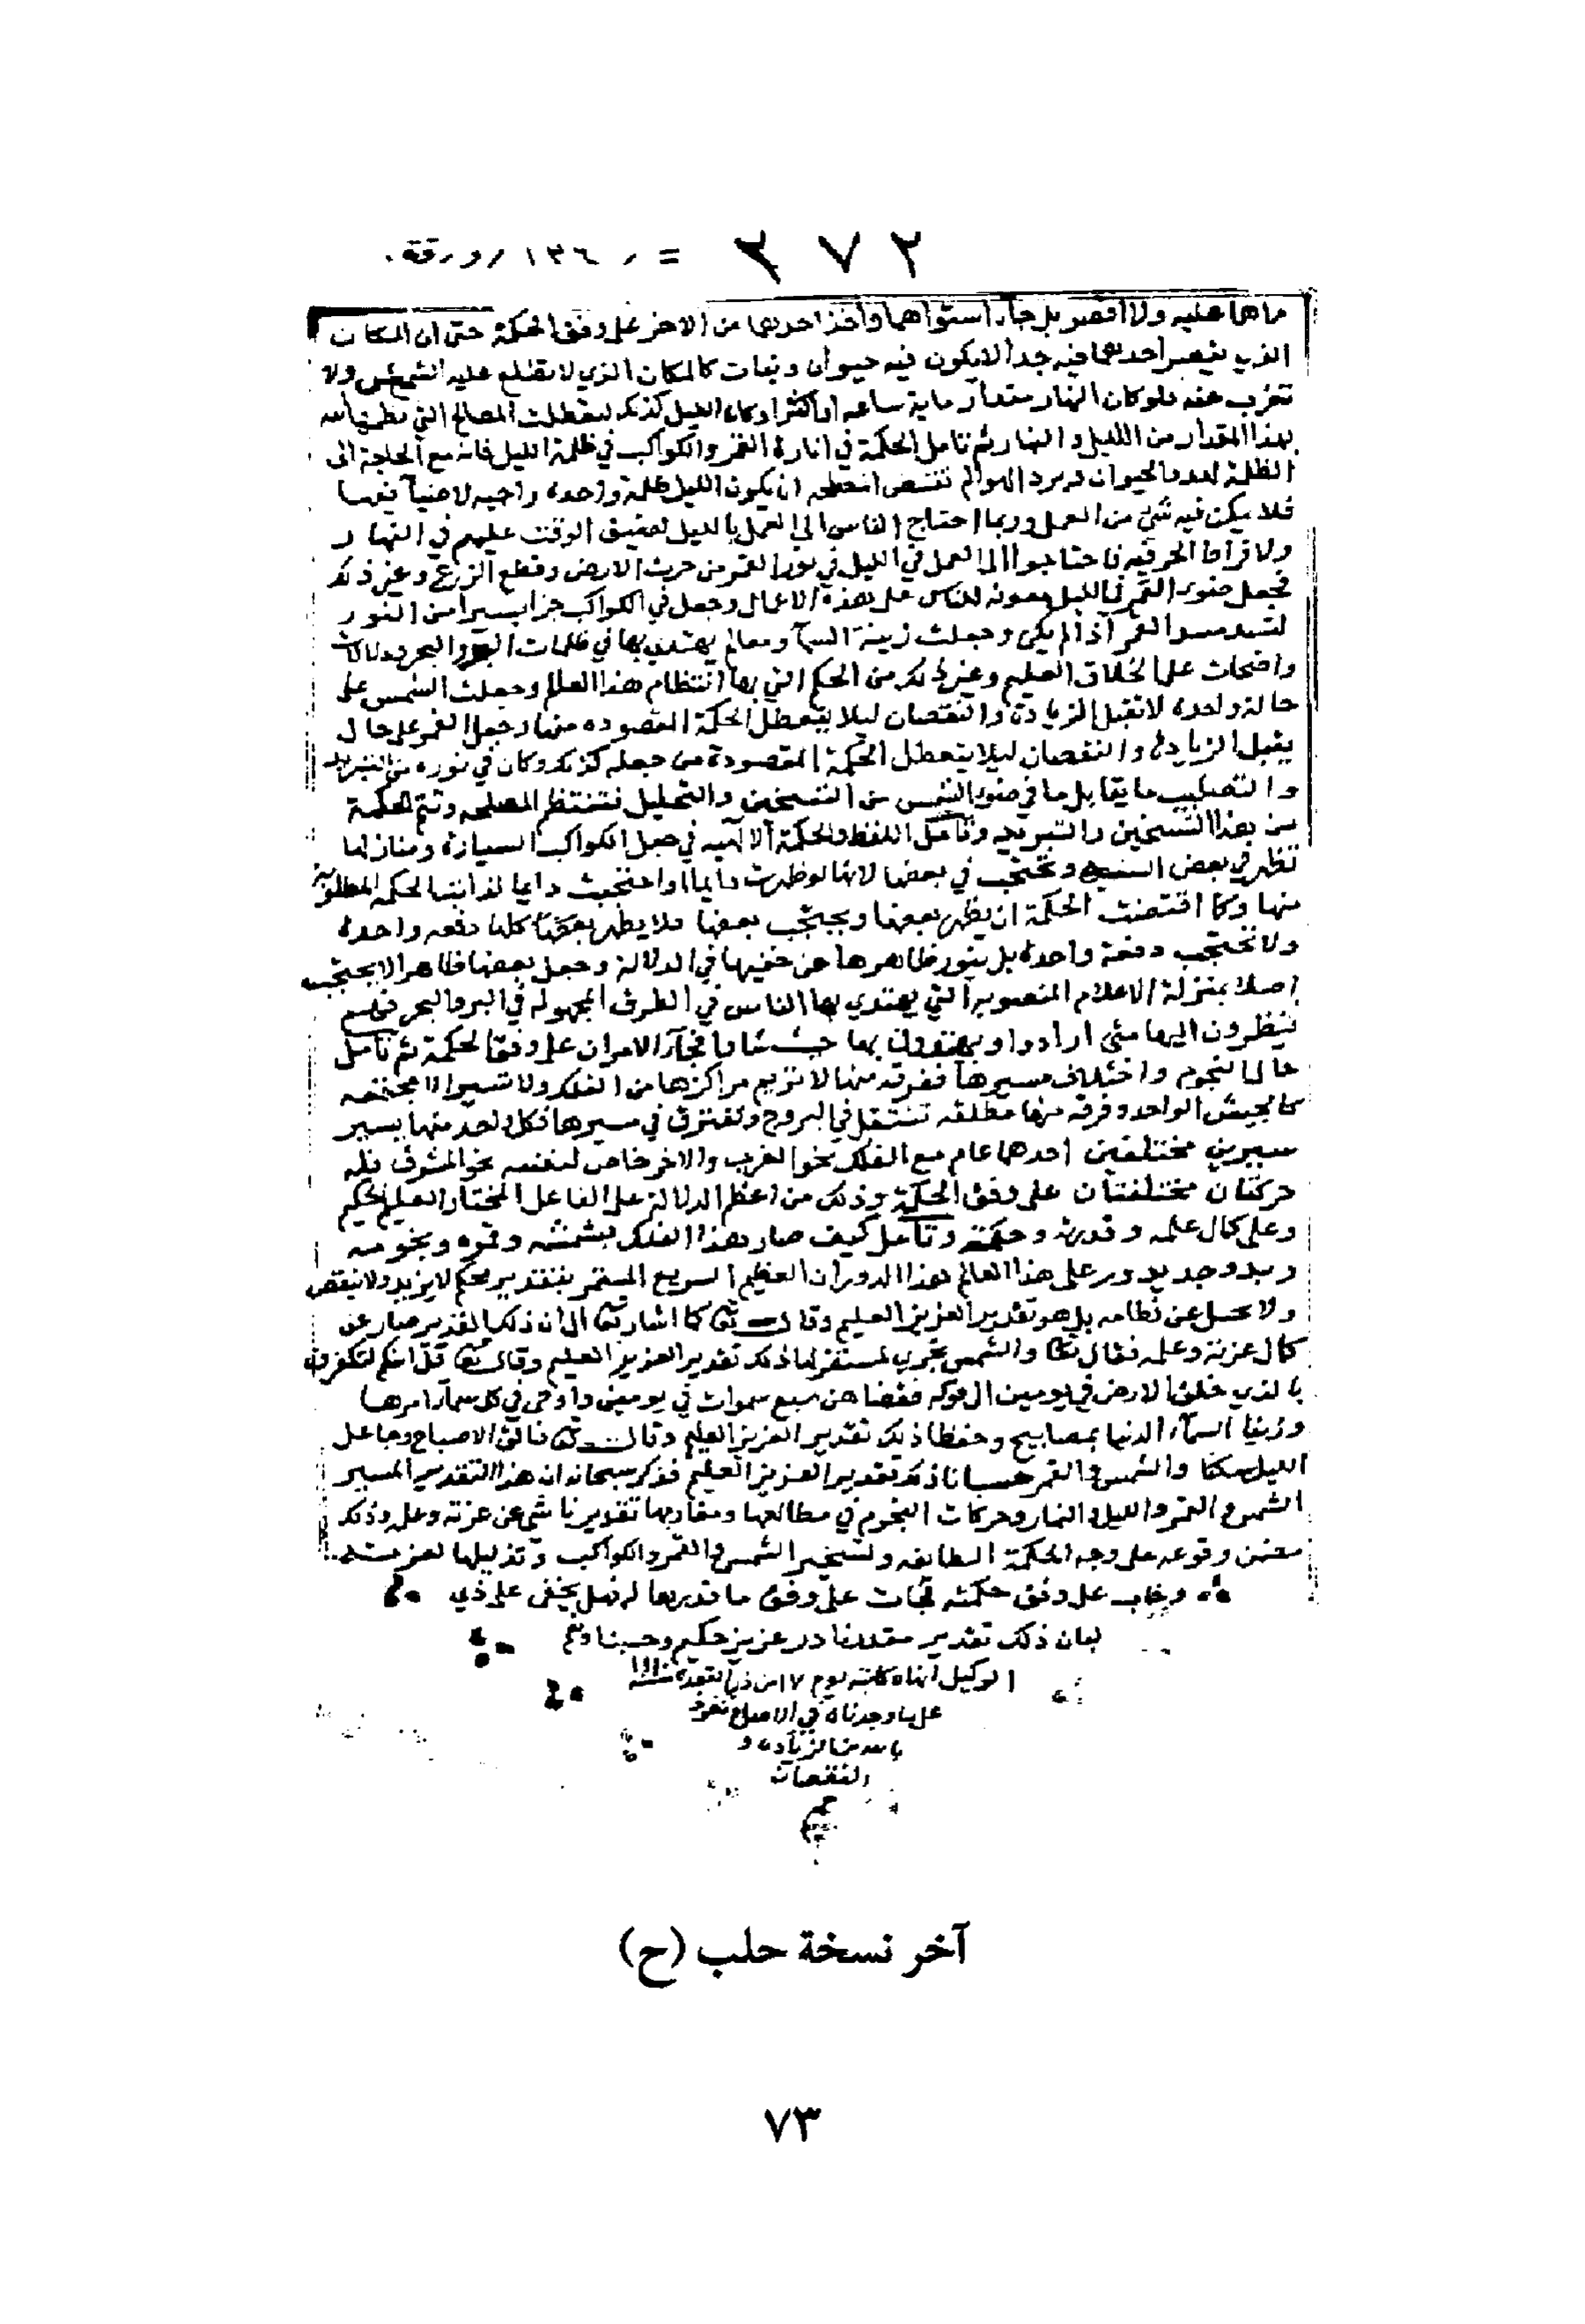 ٢ ٧ ٢ = ١٣٦ / ورقة.
ما هما عليه ولا اقصر بل جاء استواهما واخذ احدهما من الاخر على وفق الحكمة حتى ان المكان
الذي يقصر احدهما فيه جدا لا يكون فيه حيوان ونبات كالمكان الذي لا تطلع عليه الشمس ولا
تغرب عنه فلو كان النهار مقدار ماية ساعه او اكثر او كان الليل كذلك لتعطلت المصالح التي نظمها الله
بهذا المقدار من الليل والنهار ثم تامل الحكمة في انارة القمر والكواكب في ظلمة الليل فانه مع الحاجة الى
الظلمة الحيوان وبرد الهوا لم تقتض ان يكون الليل ظلمة واحدة داجيه لا ضيآ فيها
فلا يمكن فيه شي من العمل وربما احتاج الناس الى العمل بالليل لضيق الوقت عليهم في النهار
ولافراط الحر فيه فاحتاجوا الى العمل في الليل في نور القمر من حرث الارض وقطع الزرع وغير ذلك
فجعل ضوء القمر في الليل معونه للناس على هذه الاعمال وجعل في الكواكب جزا يسيرا من النور
لتسد مسد القمر اذا لم يكن وجعلت زينة السمآ ومعالم يهتدي بها في ظلمات البر والبحر ودلالات
واضحات على الخلاق العليم وغير ذلك من الحكم التي بها انتظام هذا العالم وجعلت الشمس على
حالة واحدة لا تقبل الزيادة والنقصان ليلا يتعطل الحكمة المقصوده منها وجعل القمر على حال
يقبل الزيادة والنقصان ليلا يتعطل الحكمة المقصودة من جعله كذلك وكان في نوره من التبريد
والتصليب ما يقابل ما في ضوء الشمس من التسخين والتحليل فتنتظم المصلحه وتتم الحكمة
من هذا التسخين والتبريد وتامل اللطف والحكمة الالهيه في جعل الكواكب السيارة ومنازلها
تظهر في بعض السنة وتحتجب في بعضها لانها لو ظهرت دايما او احتجبت دايما لفاتت الحكمه المطلوبة
منها وكما اقتضت الحكمة ان يظهر بعضها ويحتجب بعضها فلا يظهر كلها دفعه واحدة
ولا تحتجب دفعة واحدة بل ينوب ظاهرها عن خفيها في الدلالة وجعل بعضها ظاهرا لا يحتجب
اصلا بمنزلة الاعلام المنصوبه التي يهتدي بها الناس في الطرق المجهوله في البر والبحر فهم
ينظرون اليها متى ارادوا ويهتدون بها حيث شاوا فجآ الامران على وفق الحكمة ثم تامل
حال النجوم واختلاف مسيرها ففرقه منها لا تريم مراكزها من الفلك ولا تسير الا مجتمعه
كالجيش الواحد وفرقه منها مطلقه تنتقل في البروج وتفترق في مسيرها فكل واحد منها يسير
سيرين مختلفين احدهما عام مع الفلك نحو الغرب والاخر خاص لنفسه نحو المشرق فله
حركتان مختلفتان على وفق الحكمة وذلك من اعظم الدلالة على الفاعل المختار العليم الحكيم
وعلى كمال علمه وقدرته وحكمته وتامل كيف صار هذا الفلك بشمسه وقمره ونجومه
وبروجه يدور على هذا العالم هذا الدوران العظيم السريع المستمر بتقدير محكم لا يزيد ولا ينقص
ولا يختل عن نظامه بل هو تقدير العزيز العليم وقال تعالى كما اشار تعالى الى ان ذلك التقدير صادر عن
كمال عزته وعلمه فقال تعالى والشمس تجري لمستقر لها ذلك تقدير العزيز العليم وقال تعالى قل ائنكم لتكفرون
بالذي خلق الارض في يومين الى قوله فقضاهن سبع سموات في يومين واوحى في كل سمآء امرها
وزينا السمآء الدنيا بمصابيح وحفظا ذلك تقدير العزيز العليم وقال تعالى فالق الاصباح وجاعل
الليل سكنا والشمس والقمر حسبانا ذلك تقدير العزيز العليم فذكر سبحانه ان هذا التقدير المسير
الشمس والقمر والليل والنهار وحركات النجوم في مطالعها ومغاربها تقدير ناشي عن عزته وعلمه وذلك
متضمن وقوعه على وجه الحكمة وتسخير الشمس والقمر والكواكب وتذليلها لعزته
على وفق حكمته فجات على وفق ما قدرها له فهل يخفى على ذي
لب ان ذلك تقدير مقدر قادر عزيز حكيم وحسبنا ونعم
الوكيل انهاه كاتبه يوم ١٧ من ذي القعدة سنة
على ما وجدناه في الاصل نعوذ
بالله من الزيادة و
النقصان
تم
آخر نسخة حلب (ح)
٧٣